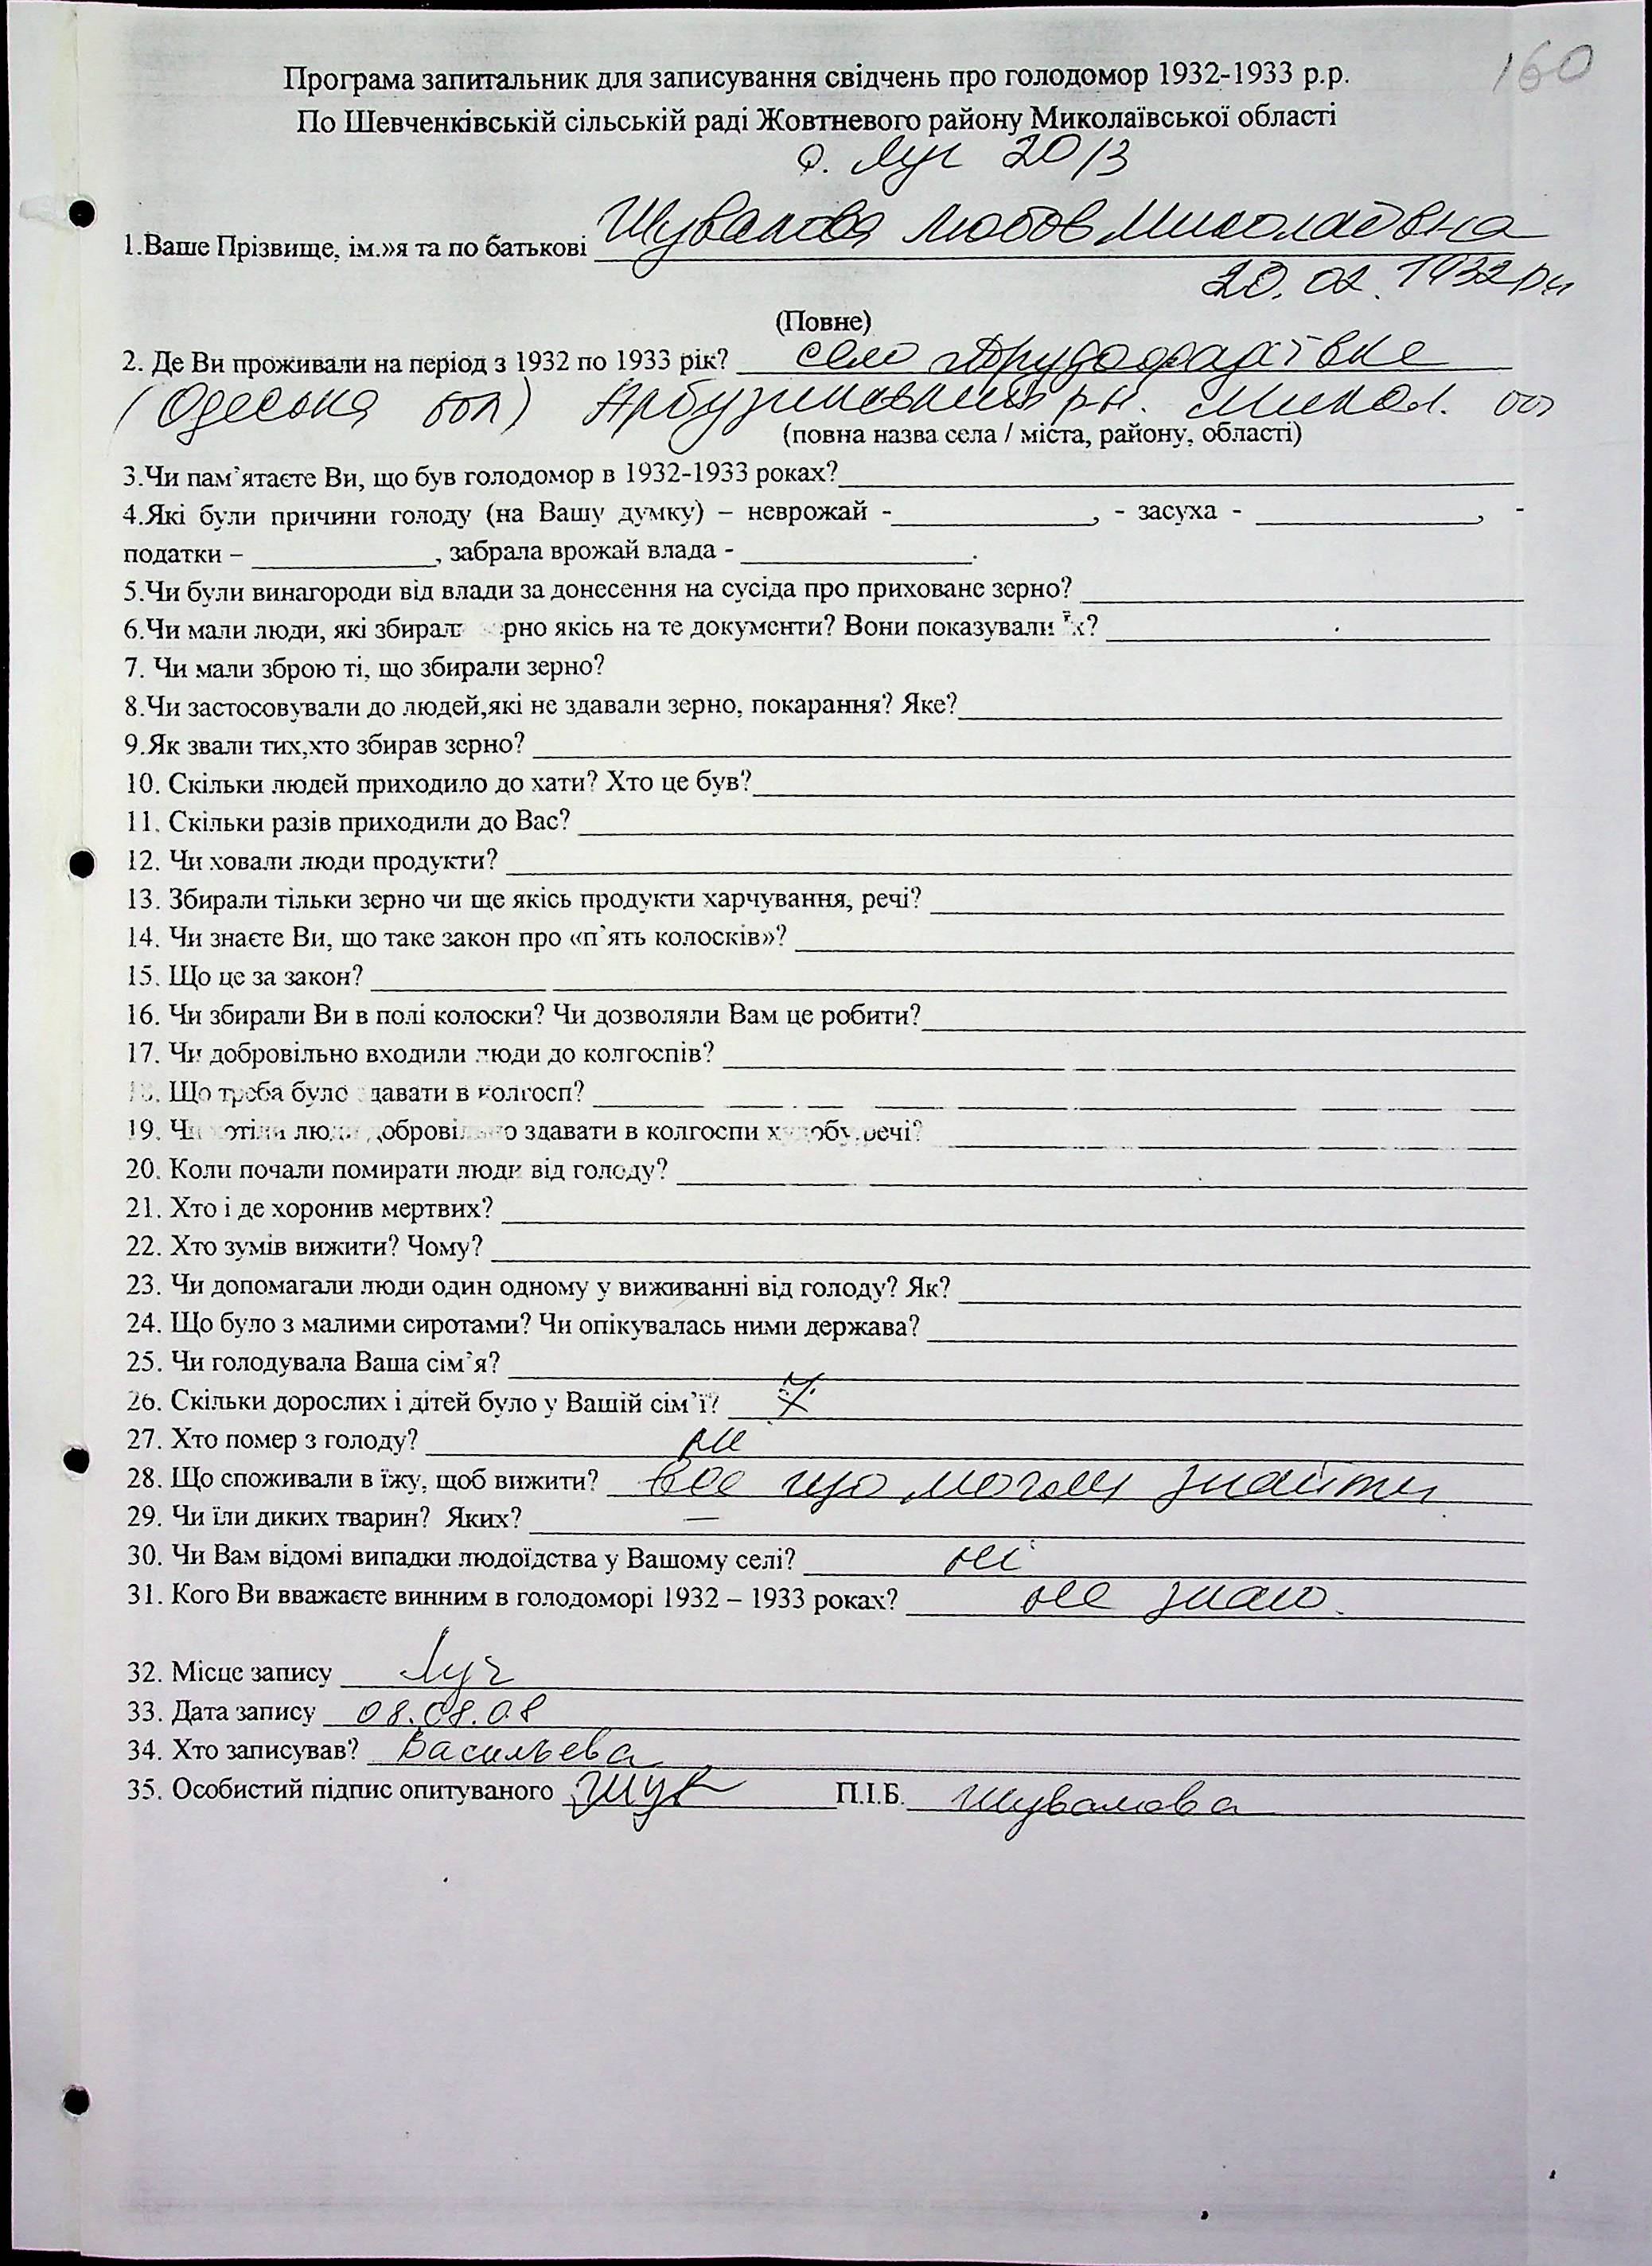 160
Програма запитальник для записування свідчень про голодомор 1932-1933 р.р.
По Шевченківській сільській раді Жовтневого району Миколаївської області
с. Луч 20/3
1.Ваше Прізвище, ім.»я та по батькові Шувалова Любов Миколаївна
20.02.1932рн
(Повне)
2. Де Ви проживали на період з 1932 по 1933 рік? село
(Одеська обл) Арбузинський р-н. Микол. обл
(повна назва села / міста, району, області)
3.Чи пам'ятаєте Ви, що був голодомор в 1932-1933 роках?
4.Які були причини голоду (на Вашу думку) – неврожай - , - засуха - , -
податки – , забрала врожай влада - .
5.Чи були винагороди від влади за донесення на сусіда про приховане зерно?
6.Чи мали люди, які збирали зерно якісь на те документи? Вони показували їх?
7. Чи мали зброю ті, що збирали зерно?
8.Чи застосовували до людей,які не здавали зерно, покарання? Яке?
9.Як звали тих,хто збирав зерно?
10. Скільки людей приходило до хати? Хто це був?
11. Скільки разів приходили до Вас?
12. Чи ховали люди продукти?
13. Збирали тільки зерно чи ще якісь продукти харчування, речі?
14. Чи знаєте Ви, що таке закон про «п'ять колосків»?
15. Що це за закон?
16. Чи збирали Ви в полі колоски? Чи дозволяли Вам це робити?
17. Чи добровільно входили люди до колгоспів?
18. Що треба було здавати в колгосп?
19. Чи хотіли люди добровільно здавати в колгоспи худобу,речі?
20. Коли почали помирати люди від голоду?
21. Хто і де хоронив мертвих?
22. Хто зумів вижити? Чому?
23. Чи допомагали люди один одному у виживанні від голоду? Як?
24. Що було з малими сиротами? Чи опікувалась ними держава?
25. Чи голодувала Ваша сім'я?
26. Скільки дорослих і дітей було у Вашій сім'ї? 7
27. Хто помер з голоду? ні
28. Що споживали в їжу, щоб вижити? все що могли знайти
29. Чи їли диких тварин? Яких? —
30. Чи Вам відомі випадки людоїдства у Вашому селі? ні
31. Кого Ви вважаєте винним в голодоморі 1932 – 1933 роках? не знаю.
32. Місце запису Луч
33. Дата запису 08.08.08
34. Хто записував? Васильева
35. Особистий підпис опитуваного Шув П.І.Б. Шувалова